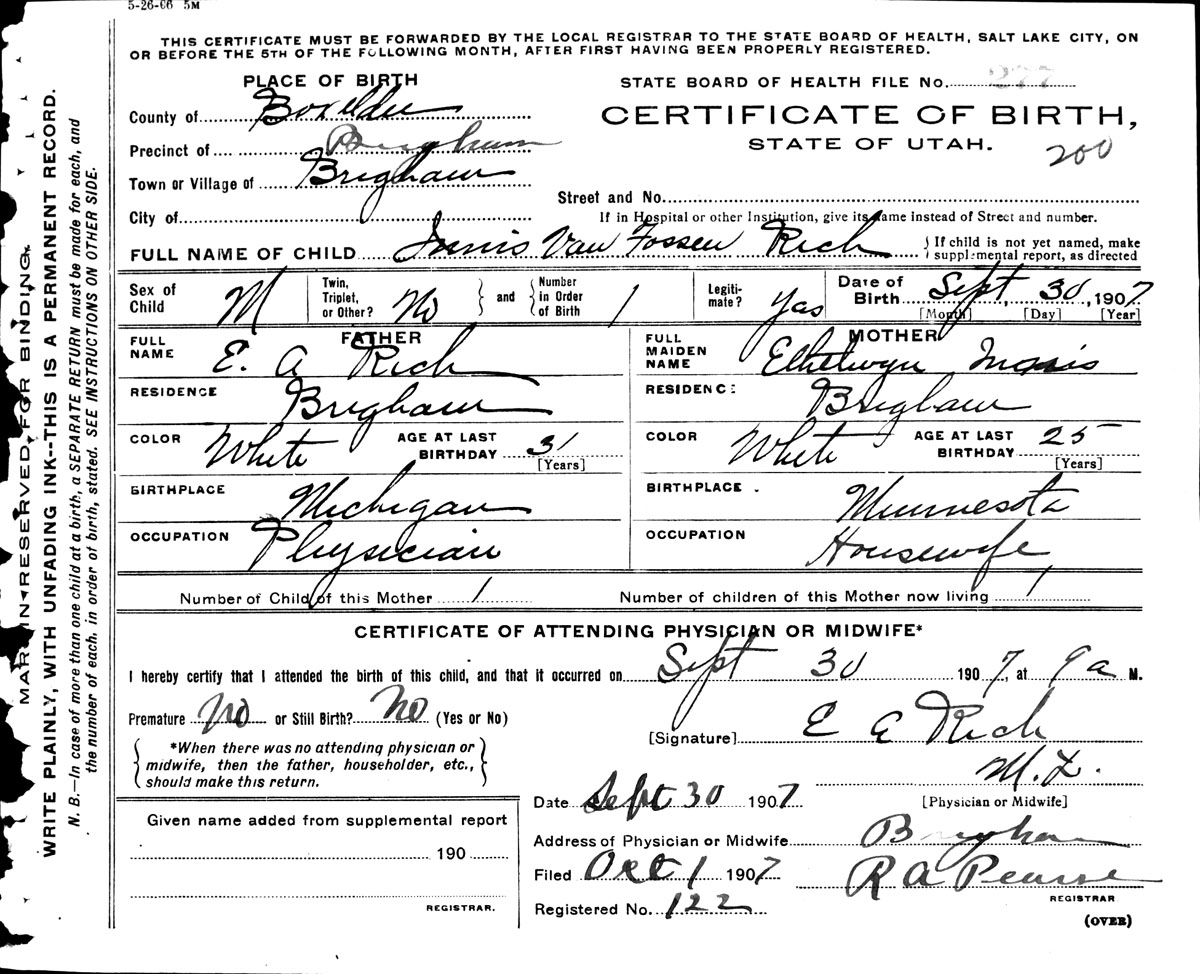 5-26-06 5M
THIS CERTIFICATE MUST BE FORWARDED BY THE LOCAL REGISTRAR TO THE STATE BOARD OF HEALTH, SALT LAKE CITY, ON
OR BEFORE THE 5TH OF THE FOLLOWING MONTH, AFTER FIRST HAVING BEEN PROPERLY REGISTERED.
PLACE OF BIRTH
STATE BOARD OF HEALTH FILE No. 277
County of Boxelder
CERTIFICATE OF BIRTH,
Precinct of Brigham
STATE OF UTAH.
200
Town or Village of Brigham
Street and No.
City of
If in Hospital or other Institution, give its name instead of Street and number.
FULL NAME OF CHILD Van Fossen Rich
If child is not yet named, make
supplemental report, as directed
Sex of Child M
Twin, Triplet, or Other? No
and
Number in Order of Birth 1
Legitimate? Yas
Date of Birth Sept, 30, 1907
[Month] [Day] [Year]
FATHER
MOTHER
FULL NAME E. A Rich
FULL MAIDEN NAME Ethelwyn
RESIDENCE Brigham
RESIDENCE Brigham
COLOR White AGE AT LAST BIRTHDAY 31 [Years]
COLOR White AGE AT LAST BIRTHDAY 25 [Years]
BIRTHPLACE Michigan
BIRTHPLACE Minnesota
OCCUPATION Physician
OCCUPATION Housewife
Number of Child of this Mother 1
Number of children of this Mother now living 1
CERTIFICATE OF ATTENDING PHYSICIAN OR MIDWIFE*
I hereby certify that I attended the birth of this child, and that it occurred on Sept 30 1907, at 9 a M.
Premature No or Still Birth? No (Yes or No)
[Signature] E A Rich
*When there was no attending physician or
midwife, then the father, householder, etc.,
should make this return.
M.D.
[Physician or Midwife]
Date Sept 30 1907
Given name added from supplemental report
190
REGISTRAR.
Address of Physician or Midwife Brigham
Filed Oct 1 1907 R A Pearse
REGISTRAR
Registered No. 122
(OVER)
MARGIN RESERVED FOR BINDING.
WRITE PLAINLY, WITH UNFADING INK--THIS IS A PERMANENT RECORD.
N. B.—In case of more than one child at a birth, a SEPARATE RETURN must be made for each, and
the number of each, in order of birth, stated. SEE INSTRUCTIONS ON OTHER SIDE.